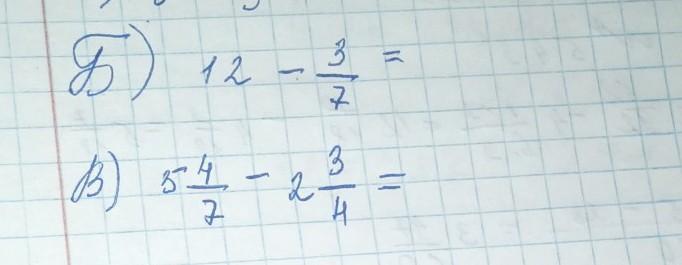 Б) 12 - 3/7 =
В) 5 4/7 - 2 3/4 =